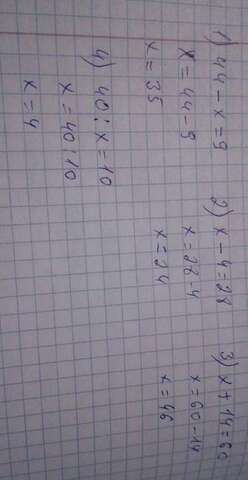 1) 44 - x = 9
x = 44 - 9
x = 35
2) x - 4 = 28
x = 28 - 4
x = 24
3) x + 14 = 60
x = 60 - 14
x = 46
4) 40 : x = 10
x = 40 : 10
x = 4